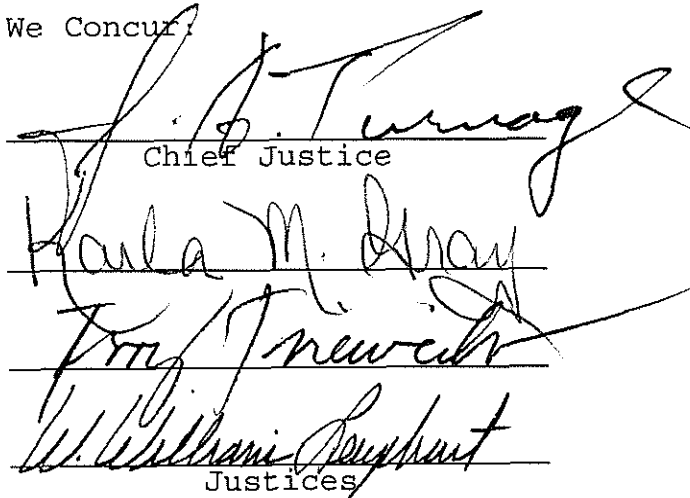 We Concur:
J. A. Turnage
Chief Justice
Karla M. Gray
Terry Trieweiler
W. William Leaphart
Justices